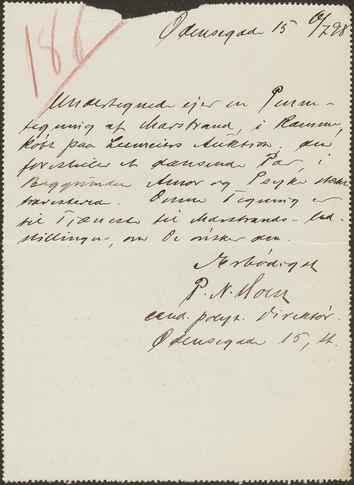 186
Odensegade 15 6/7 98
Undertegnede ejer en Penne-
tegning af Marstrand, i Ramme,
købt paa Auktion, der
forestiller et dansende Par, i
Baggrunden Amor og Psyke
travesteret. Denne Tegning er
til Tjeneste til Marstrands-Ud-
stillingen, om De ønsker den.
Ærbødigst
P. N.
cand. polyt. Direktør.
Odensegade 15,